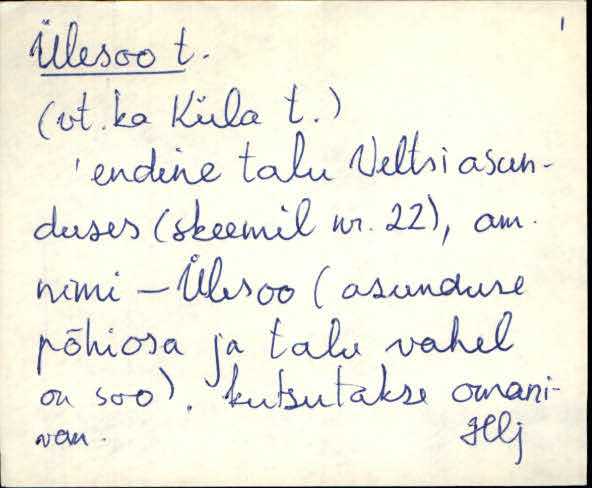 1
Ülesoo t.
(vt. ka Küla t.)
'endine talu Veltsi asun-
duses (skeemil nr. 22), am.
nimi – Ülesoo (asunduse
põhiosa ja talu vahel
on soo). Kutsutakse omani-